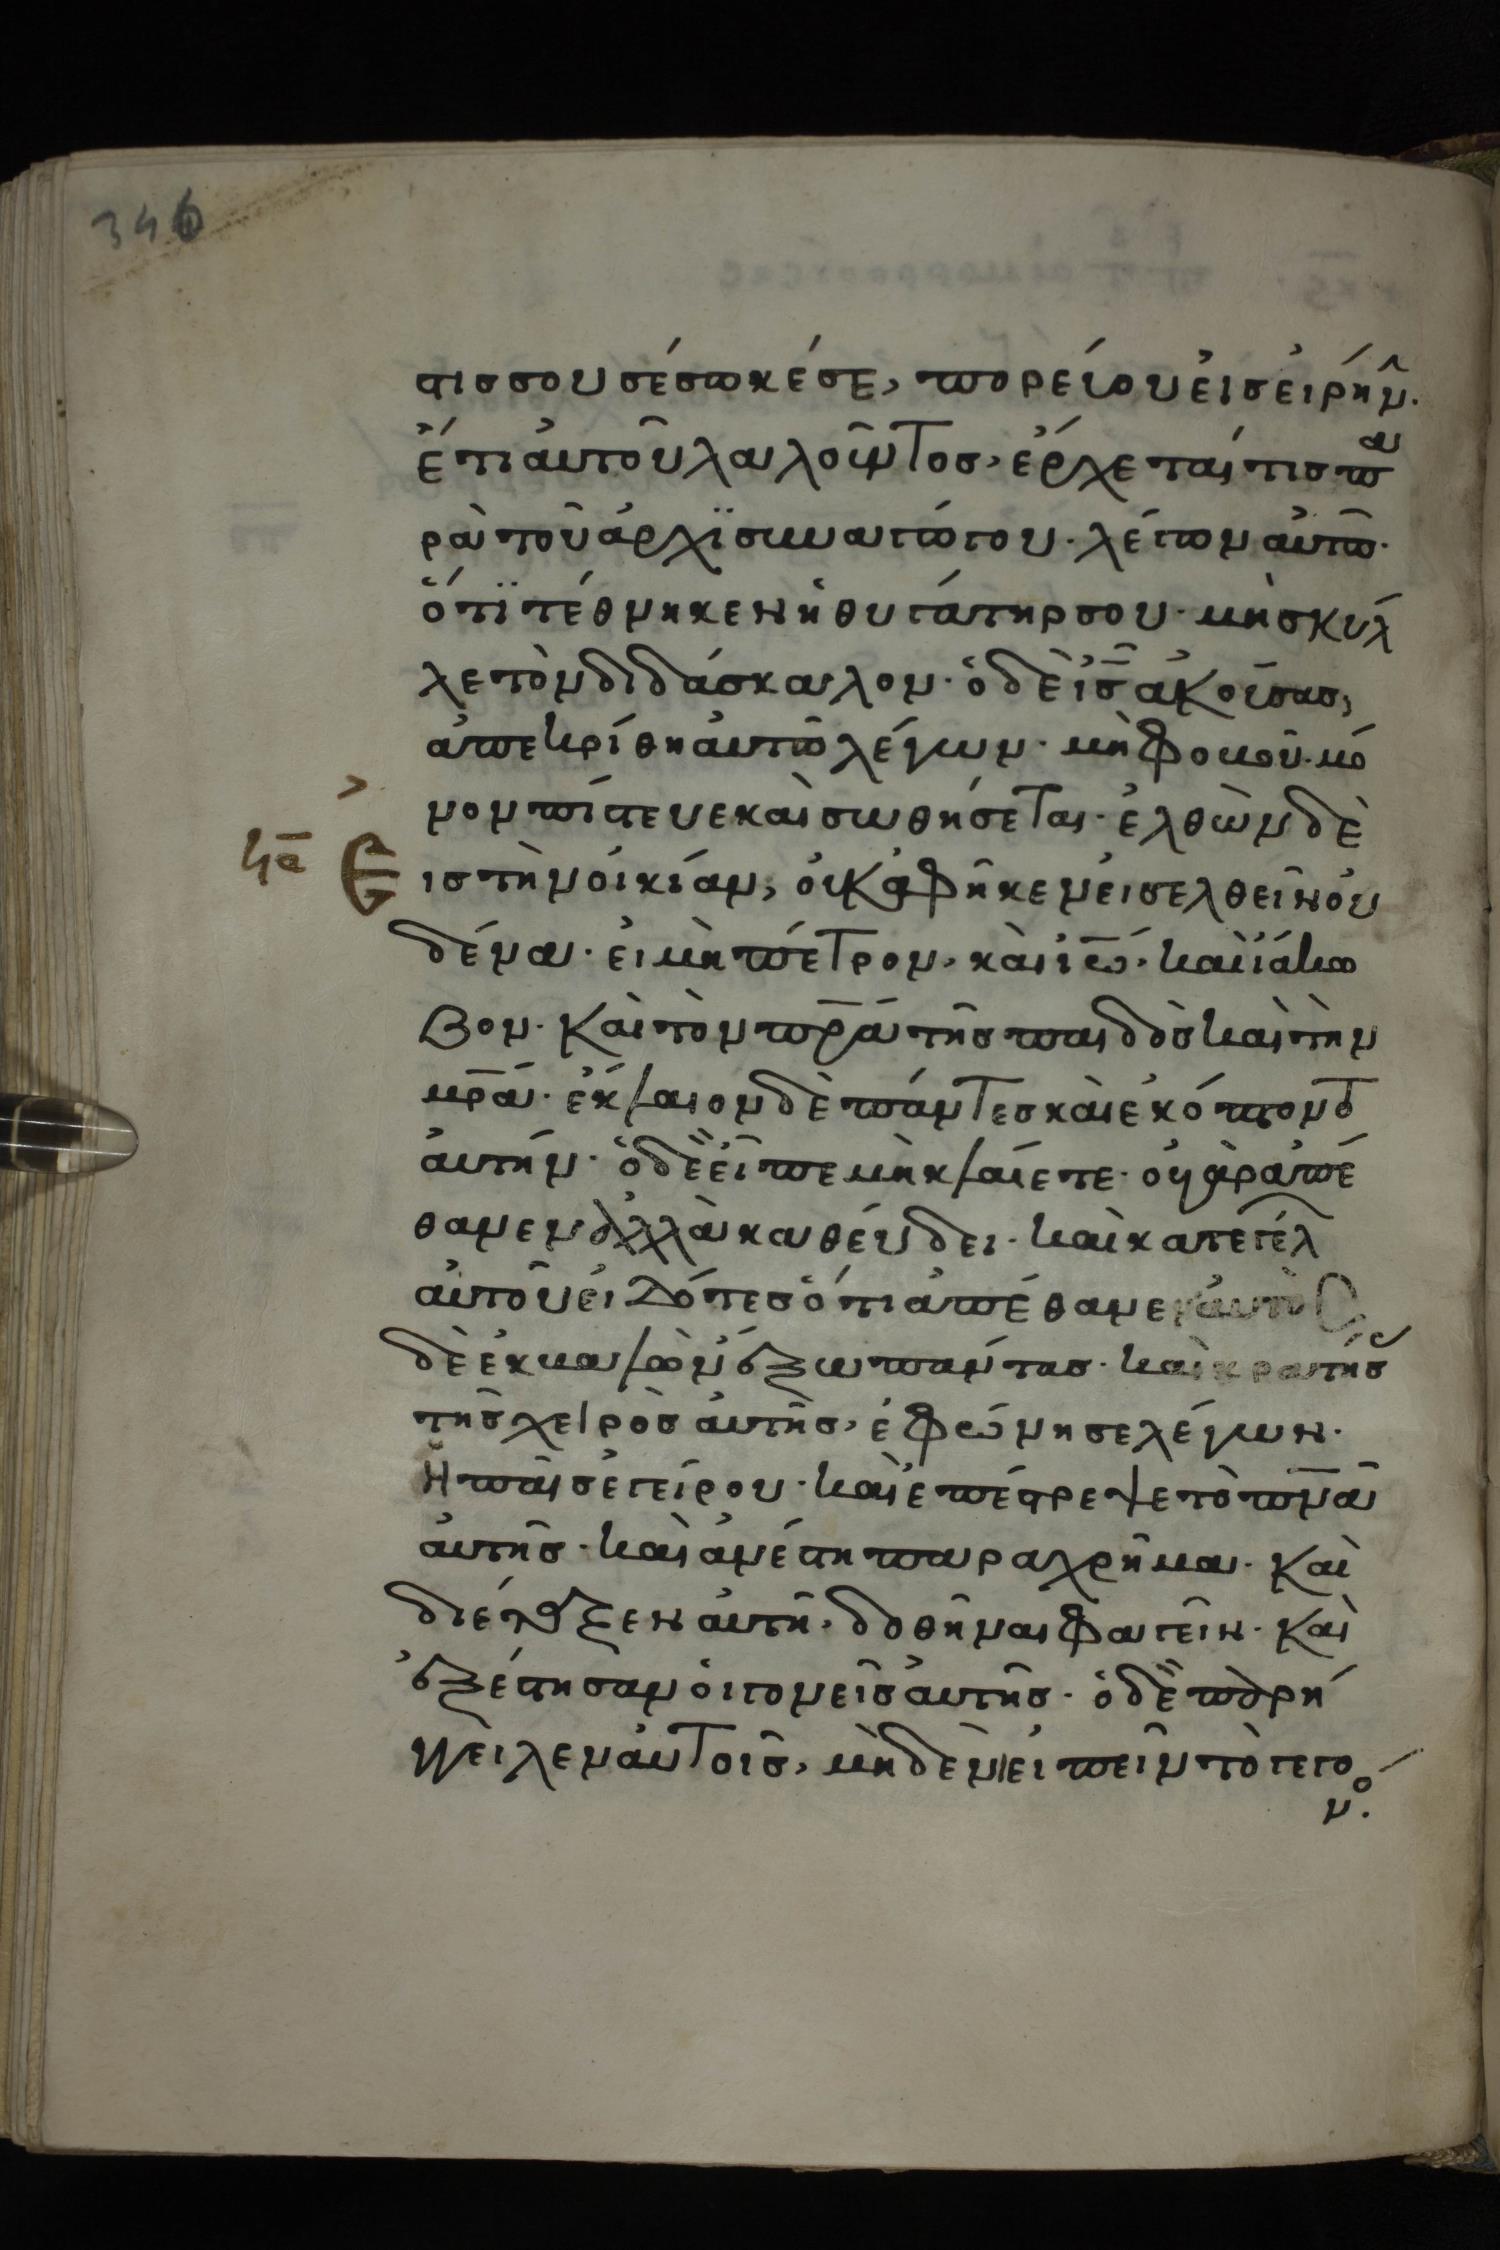 346
στισ σου σέσωκέ σε, πορεύου εἰσ εἰρήν(ην).
Ἔτι αὐτοῦ λαλοῦντοσ, ἔρχεταί τισ πα
ρὰ τοῦ ἀρχϊσυναγώγου. λέγων αὐτῶ.
ὅτϊ τέθνηκεν ἡ θυγάτηρ σου. μὴ σκύλ
λε τὸν διδάσκαλον. ὁ δὲ ἰ̅σ̅ ἀκούσασ,
ἀπεκρίθη αὐτῶ λέγων. μὴ φοβοῦ. μό
νον πίστευε καὶ σωθήσεται. ἐλθὼν δὲ
ϟα̅ Εἰσ τὴν οἰκίαν, οὐκ ἀφῆκεν εἰσελθεῖν οὐ
δένα. εἰ μὴ πέτρον, καὶ ἰω̅. καὶ ἰάκω
βον. καὶ τὸν πρ̅α τῆσ παιδὸσ καὶ τὴν
μρ̅α. ἔκλαιον δὲ πάντεσ καὶ ἐκόπτοντ
αὐτήν. ὁ δὲ εἶπε μὴ κλαίετε. οὐ γὰρ ἀπέ
θανεν ἀλλὰ καθεύδει. καὶ κατεγέλ
αὐτοῦ εἰδότεσ ὅτι ἀπέθανεν αὐτὸσ
δὲ ἐκβαλὼν ἔξω πάντασ. καὶ κρατήσ
τῆσ χειρὸσ αὐτῆσ, ἐφώνησε λέγων.
Ἡ παῖσ ἐγείρου. καὶ ἐπέστρεψε τὸ πν̅α
αὐτῆσ. καὶ ἀνέστη παραχρῆμα. καὶ
διέταξεν αὐτῆ, δοθῆναι φαγεῖν. καὶ
ἐξέστησαν οἱ γονεῖσ αὐτῆσ. ὁ δὲ παρή
γγειλεν αὐτοῖσ, μηδενὶ εἰπεῖν τὸ γεγο
νό.